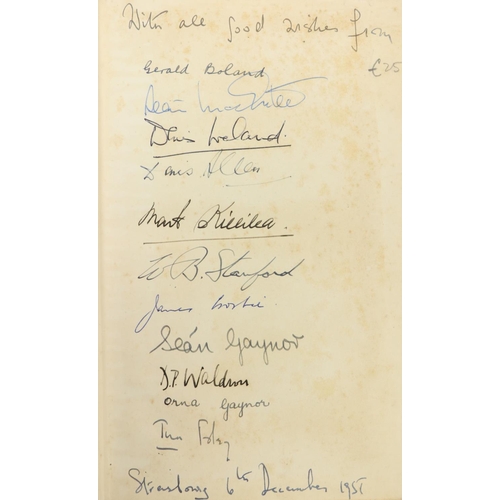 With all good wishes from
£25
Gerald Boland
Seán MacBride
Denis Ireland.
Denis Allen
Mark Killilea.
W. B. Stanford
James Crosbie
Seán Gaynor
D.P. Waldron
Orna Gaynor
Strasbourg 6th December 1951